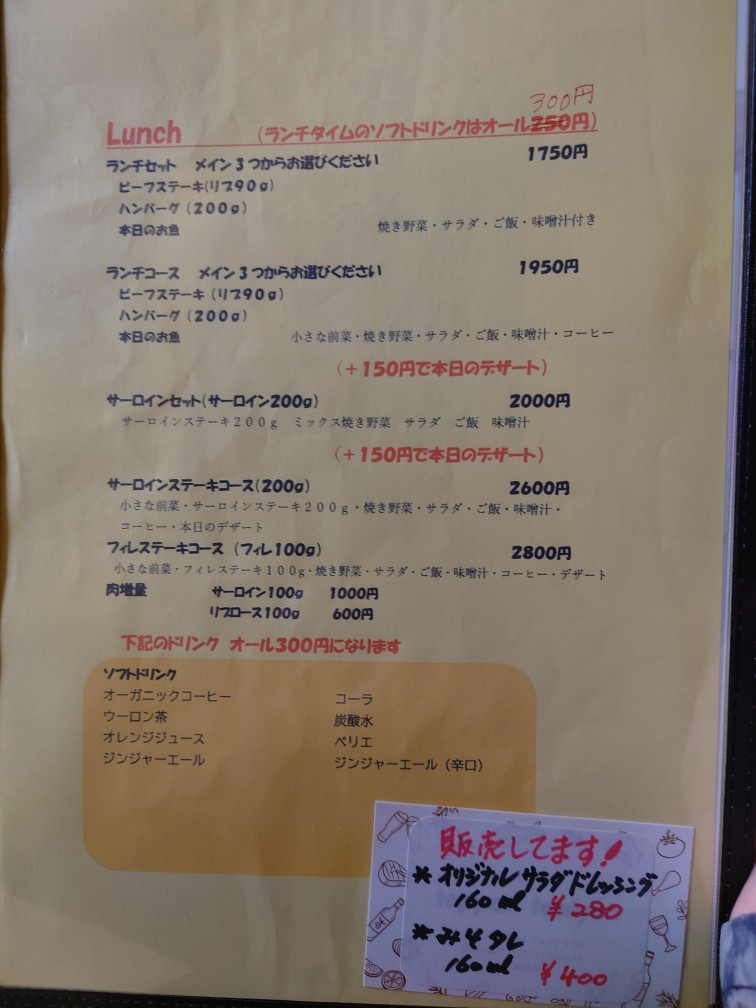 300円
Lunch （ランチタイムのソフトドリンクはオール250円）
ランチセット メイン３つからお選びください 1750円
ビーフステーキ（リブ９０ｇ）
ハンバーグ（２００ｇ）
本日のお魚 焼き野菜・サラダ・ご飯・味噌汁付き
ランチコース メイン３つからお選びください 1950円
ビーフステーキ（リブ９０ｇ）
ハンバーグ（２００ｇ）
本日のお魚 小さな前菜・焼き野菜・サラダ・ご飯・味噌汁・コーヒー
（＋150円で本日のデザート）
サーロインセット（サーロイン200g） 2000円
サーロインステーキ２００ｇ ミックス焼き野菜 サラダ ご飯 味噌汁
（＋150円で本日のデザート）
サーロインステーキコース（200g） 2600円
小さな前菜・サーロインステーキ２００ｇ・焼き野菜・サラダ・ご飯・味噌汁・
コーヒー・本日のデザート
フィレステーキコース（フィレ100g） 2800円
小さな前菜・フィレステーキ１００ｇ・焼き野菜・サラダ・ご飯・味噌汁・コーヒー・デザート
肉増量 サーロイン100g 1000円
リブロース100g 600円
下記のドリンク オール300円になります
ソフトドリンク
オーガニックコーヒー コーラ
ウーロン茶 炭酸水
オレンジジュース ペリエ
ジンジャーエール ジンジャーエール（辛口）
販売してます！
＊オリジナルサラダドレッシング
160ml ¥280
＊みそタレ
160ml ¥400